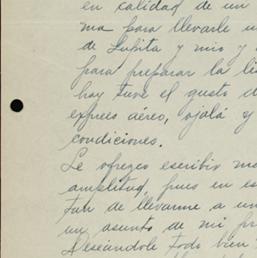 en calidad de un
ma para llevarle u
de Lupita y mio y
para preparar la li
hoy tuve el gusto d
exprés aéreo, ojalá y
condiciones.
Le ofrezco escribir ma
amplitud, pues en es
tan de llevarme a un
un asunto de mi pr
Deseándole todo bien